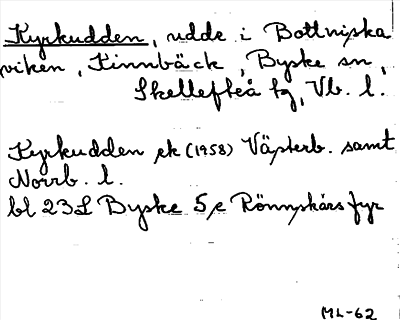 Kyrkudden, udde i Bottniska
viken, Kinnbäck, Byske sn,
Skellefteå tg, Vb. l.
Kyrkudden ek (1958) Västerb. samt
Norrb. l.
bl 23L Byske 5 e Rönnskärs fyr
ML-62